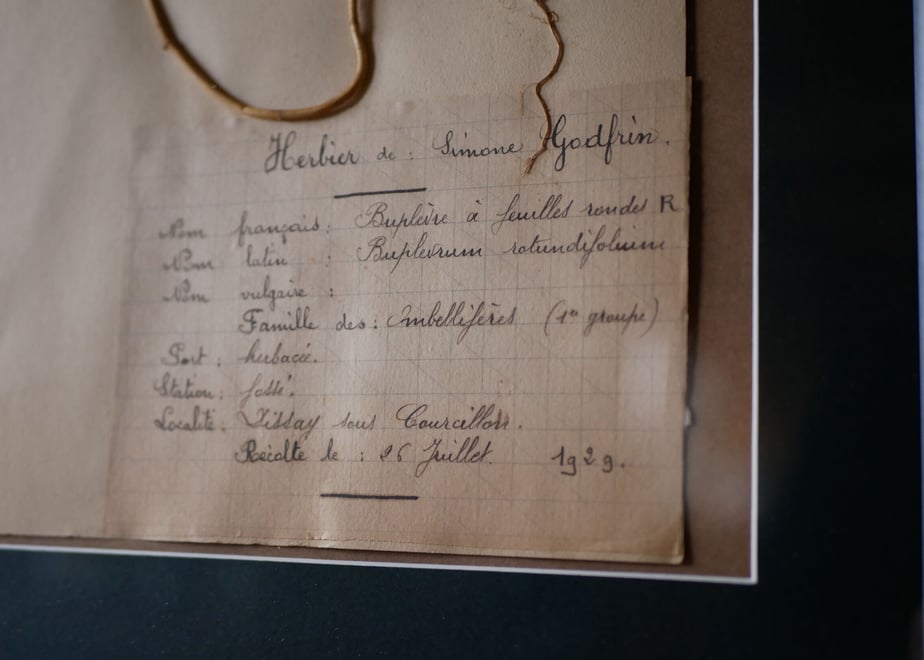 Herbier de : Simone Godfrin.
Nom français : Buplèvre à feuilles rondes R
Nom latin : Buplevrum rotundifolium
Nom vulgaire :
Famille des : Ombellifères (1er groupe)
Port : herbacé.
Station : fossé.
Localité : Dissay sous Courcillon.
Récolte le : 26 Juillet. 1929.